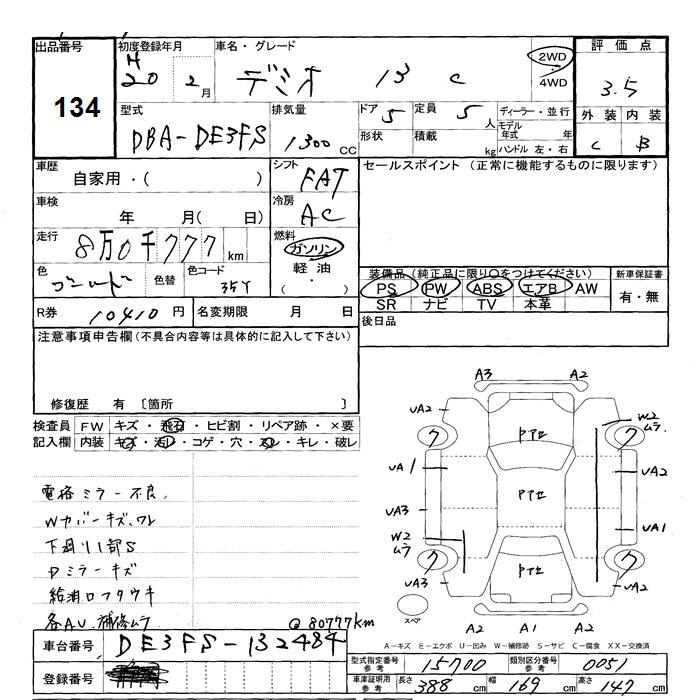 出品番号
134
初度登録年月
H
20 2月
車名・グレード
デミオ 13 C
2WD
4WD
評価点
3.5
外装 内装
C B
型式
DBA-DE3FS
排気量
1300 CC
ドア 5
定員 5 人
形状
積載 kg
ディーラー・並行
モデル年式 年
ハンドル 左・右
車歴
自家用・( )
シフト
FAT
セールスポイント (正常に機能するものに限ります)
車検
年 月( 日)
冷房
AC
走行
8万0千777 km
燃料
ガソリン
軽油
( ・ )
色
ゴールド
色替
色コード
35Y
装備品 (純正品に限り○をつけてください)
PS PW ABS エアB AW
SR ナビ TV 本革
新車保証書
有・無
R券
10410 円
名変期限 月 日
後日品
注意事項申告欄 (不具合内容等は具体的に記入して下さい)
修復歴 有 〔箇所 〕
検査員
記入欄
FW キズ・飛石・ヒビ割・リペア跡・×要
内装 キズ・汚レ・コゲ・穴・スレ・キレ・破レ
電格ミラー不良
Wカバーキズ、ワレ
下廻り1部S
Dミラーキズ
給油口フタウキ
各AU、補修ムラ
@80777km
A3 A2
UA2
W2
ムラ
ク
ク
Pアセ
UA1
UA2
Pアセ
UA3
UA1
W2
ムラ
ク
ク
Pアセ
UA3
UA2
スペア
A2 A1 A2
A-キズ E-エクボ U-凹み W-補修跡 S-サビ C-腐食 XX-交換済
車台番号
DE3FS-132484
登録番号
型式指定番号
参考
15700
類別区分番号
参考
0051
車庫証明用
参考
長さ 388 cm
幅 169 cm
高さ 147 cm